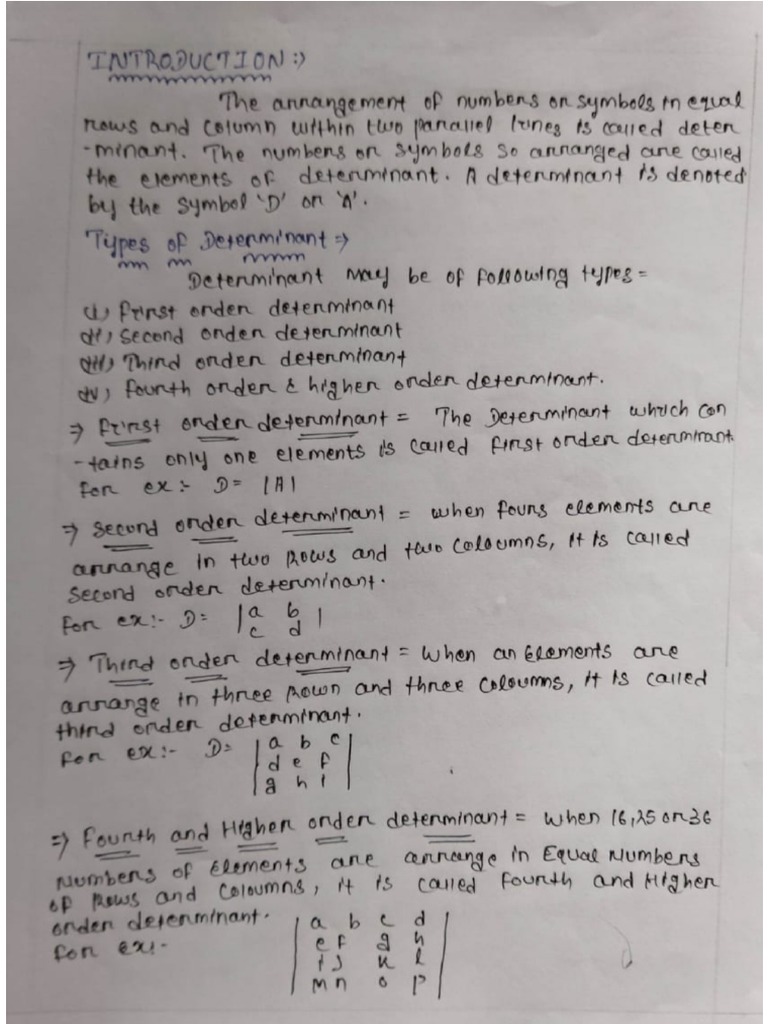 INTRODUCTION :⇒
The arrangement of numbers or symbols in equal
rows and column within two parallel lines is called deter
-minant. The numbers or symbols so arranged are called
the elements of determinant. A determinant is denoted
by the symbol 'D' or 'A'.
Types of Determinant ⇒
Determinant may be of following types =
(i) first order determinant
(ii) Second order determinant
(iii) Third order determinant
(iv) fourth order & higher order determinant.
⇒ first order determinant = The Determinant which con
-tains only one elements is called first order determinant
for ex :- D = |A|
⇒ Second order determinant = when fours elements are
arrange in two Rows and two Coloumns, it is called
Second order determinant.
for ex:- D = | a b |
c d
⇒ Third order determinant = when an Elements are
arrange in three Rown and three Coloumns, it is called
third order determinant.
for ex:- D = | a b c |
d e f
g h i
⇒ fourth and Higher order determinant = when 16,25 or 36
Numbers of Elements are arrange in Equal Numbers
of Rows and Coloumns, it is called fourth and Higher
order determinant.
for ex:- | a b c d |
e f g h
i j k l
m n o p